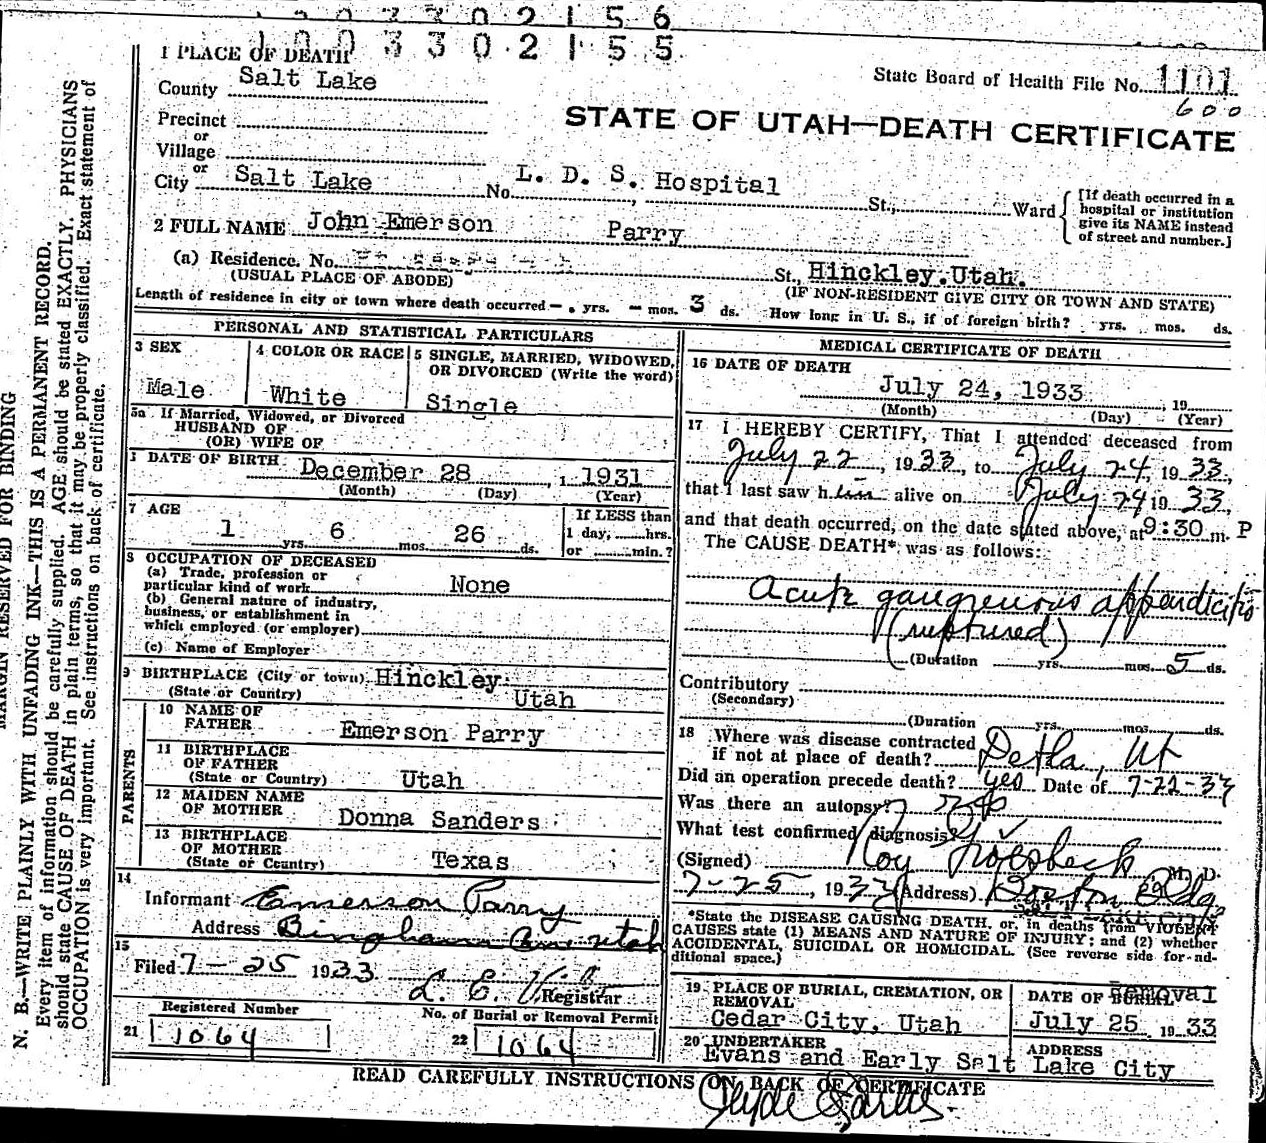 1 0 0 3 3 0 2 1 5 6
1 0 0 3 3 0 2 1 5 5
1 PLACE OF DEATH
State Board of Health File No. 1101
600
County Salt Lake
STATE OF UTAH—DEATH CERTIFICATE
Precinct
or
Village
or
City Salt Lake No. L. D. S. Hospital St., Ward
[If death occurred in a
hospital or institution
give its NAME instead
of street and number.]
2 FULL NAME John Emerson Parry
(a) Residence. No. St., Hinckley.Utah.
(USUAL PLACE OF ABODE) (IF NON-RESIDENT GIVE CITY OR TOWN AND STATE)
Length of residence in city or town where death occurred — yrs. — mos. 3 ds. How long in U. S., if of foreign birth? yrs. mos. ds.
PERSONAL AND STATISTICAL PARTICULARS
3 SEX
Male
4 COLOR OR RACE
White
5 SINGLE, MARRIED, WIDOWED,
OR DIVORCED (Write the word)
Single
5a If Married, Widowed, or Divorced
HUSBAND OF
(OR) WIFE OF
DATE OF BIRTH December 28, 1931
(Month) (Day) (Year)
7 AGE
1 yrs. 6 mos. 26 ds.
If LESS than
1 day, hrs.
or min.?
8 OCCUPATION OF DECEASED
(a) Trade, profession or
particular kind of work None
(b) General nature of industry,
business, or establishment in
which employed (or employer)
(c) Name of Employer
9 BIRTHPLACE (City or town) Hinckley
(State or Country) Utah
PARENTS
10 NAME OF
FATHER Emerson Parry
11 BIRTHPLACE
OF FATHER
(State or Country) Utah
12 MAIDEN NAME
OF MOTHER Donna Sanders
13 BIRTHPLACE
OF MOTHER
(State or Country) Texas
14
Informant Emerson Parry
Address Bingham Utah
15
Filed 7-25 1933
Registrar
Registered Number
21 1064
No. of Burial or Removal Permit
22 1064
MEDICAL CERTIFICATE OF DEATH
16 DATE OF DEATH
July 24, 1933 19
(Month) (Day) (Year)
17 I HEREBY CERTIFY, That I attended deceased from
July 22, 1933, to July 24, 1933,
that I last saw him alive on July 24 1933,
and that death occurred, on the date stated above, at 9:30 m. P
The CAUSE DEATH* was as follows:
Acute gangrenous appendicitis
(ruptured)
(Duration yrs. mos. 5 ds.
Contributory
(Secondary)
(Duration yrs. mos. ds.
18 Where was disease contracted
if not at place of death? Delta, Ut
Did an operation precede death? yes Date of 7-22-33
Was there an autopsy? no
What test confirmed diagnosis?
(Signed) Roy Groesbeck M. D.
7-25, 1933 (Address) Boston Bldg
*State the DISEASE CAUSING DEATH, or, in deaths from VIOLENT
CAUSES state (1) MEANS AND NATURE OF INJURY; and (2) whether
ACCIDENTAL, SUICIDAL OR HOMICIDAL. (See reverse side for ad-
ditional space.)
19 PLACE OF BURIAL, CREMATION, OR
REMOVAL
Cedar City, Utah
DATE OF BURIAL Removal
July 25 1933
20 UNDERTAKER ADDRESS
Evans and Early Salt Lake City
READ CAREFULLY INSTRUCTIONS ON BACK OF CERTIFICATE
MARGIN RESERVED FOR BINDING
N. B.—WRITE PLAINLY WITH UNFADING INK—THIS IS A PERMANENT RECORD.
Every item of information should be carefully supplied. AGE should be stated EXACTLY. PHYSICIANS
should state CAUSE OF DEATH in plain terms, so that it may be properly classified. Exact statement of
OCCUPATION is very important. See instructions on back of certificate.